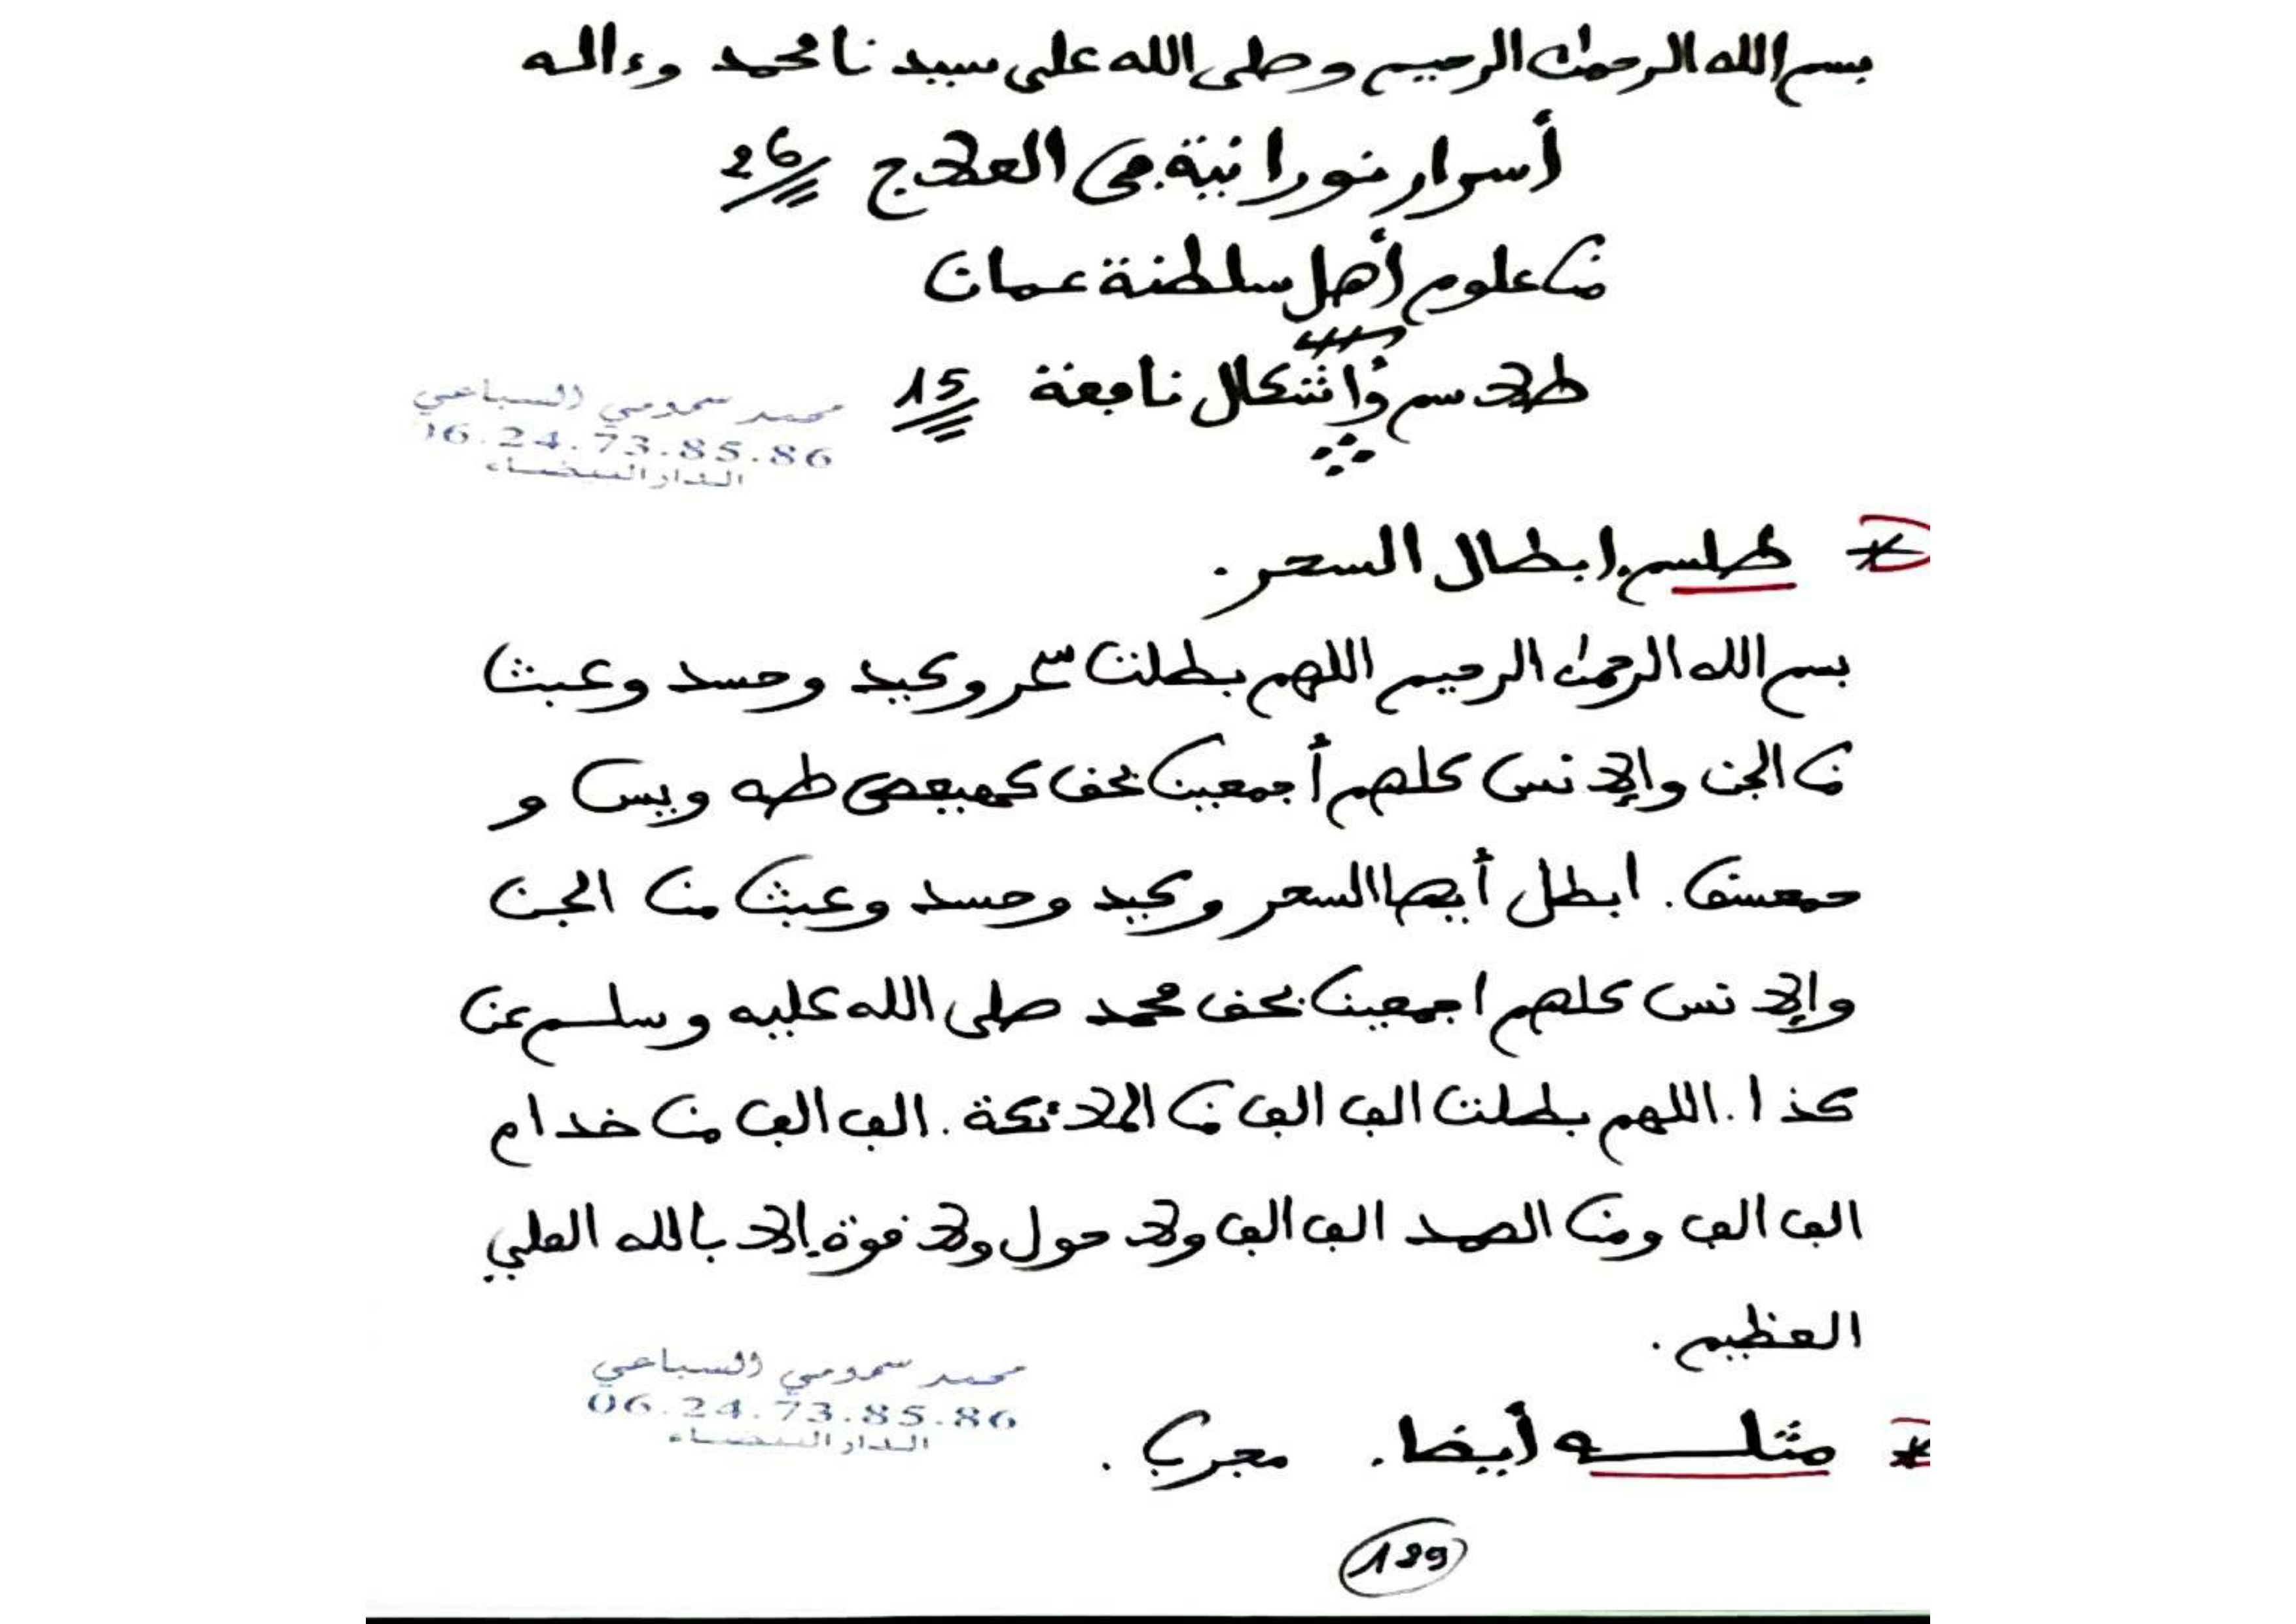 بسم الله الرحمان الرحيم وصلى الله على سيدنا محمد وءاله
أسرار نورانية في العلاج 26
من علوم أهل سلطنة عمان
طلاسم وأشكال نافعة 15
محمد سمومي السباعي
06.24.73.85.86
الدار البيضاء
طلسم إبطال السحر.
بسم الله الرحمان الرحيم اللهم بطلت سحر وكيد وحسد وعبث
من الجن والإنس كلهم أجمعين بحق كهيعص طه ويس و
حمعسق. ابطل أيها السحر وكيد وحسد وعبث من الجن
والإنس كلهم اجمعين بحق محمد صلى الله عليه وسلم عن
كذا. اللهم بطلت الف الف من الملائكة. الف الف من خدام
الف الف ومن الصمد الف الف ولا حول ولا قوة إلا بالله العلي
العظيم.
محمد سمومي السباعي
06.24.73.85.86
الدار البيضاء
مثله أيضا. مجرب.
189